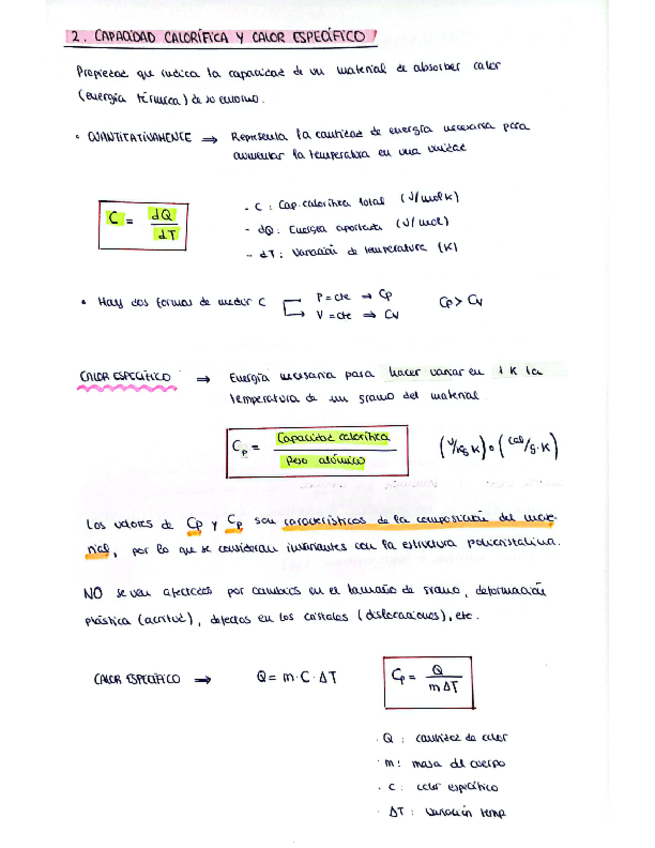 2. CAPACIDAD CALORÍFICA Y CALOR ESPECÍFICO
Propiedad que indica la capacidad de un material de absorber calor
(energía térmica) de su entorno.
• CUANTITATIVAMENTE ⇒ Representa la cantidad de energía necesaria para
aumentar la temperatura en una unidad
C = dQ / dT
- C : Cap. calorífica total (J/mol K)
- dQ : Energía aportada (J/mol)
- dT : Variación de temperatura (K)
• Hay dos formas de medir C
P = cte → Cp
V = cte ⇒ Cv
Cp > Cv
CALOR ESPECÍFICO ⇒ Energía necesaria para hacer variar en 1 K la
temperatura de un gramo del material
Cp = Capacidad calorífica / Peso atómico (J/kg K) o (cal/g·K)
Los valores de Cp y Cp son característicos de la composición del mate-
rial, por lo que se consideran invariantes con la estructura policristalina.
NO se ven afectados por cambios en el tamaño de grano, deformación
plástica (acritud), defectos en los cristales (dislocaciones), etc.
CALOR ESPECÍFICO ⇒ Q = m · C · ΔT
Cp = Q / m ΔT
· Q : cantidad de calor
· m : masa del cuerpo
· C : calor específico
· ΔT : Variación temp